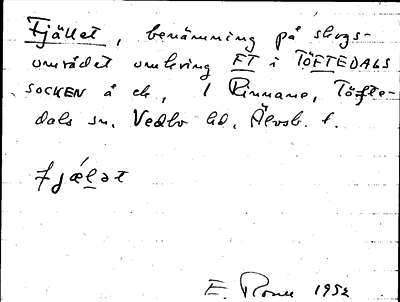 Fjället, benämning på skogs-
området omkring FT i TÖFTEDALS
SOCKEN å ek, 1 Rinnane, Töfte-
dals sn. Vedbo hd. Älvsb. l.
fjælət
E. 1952